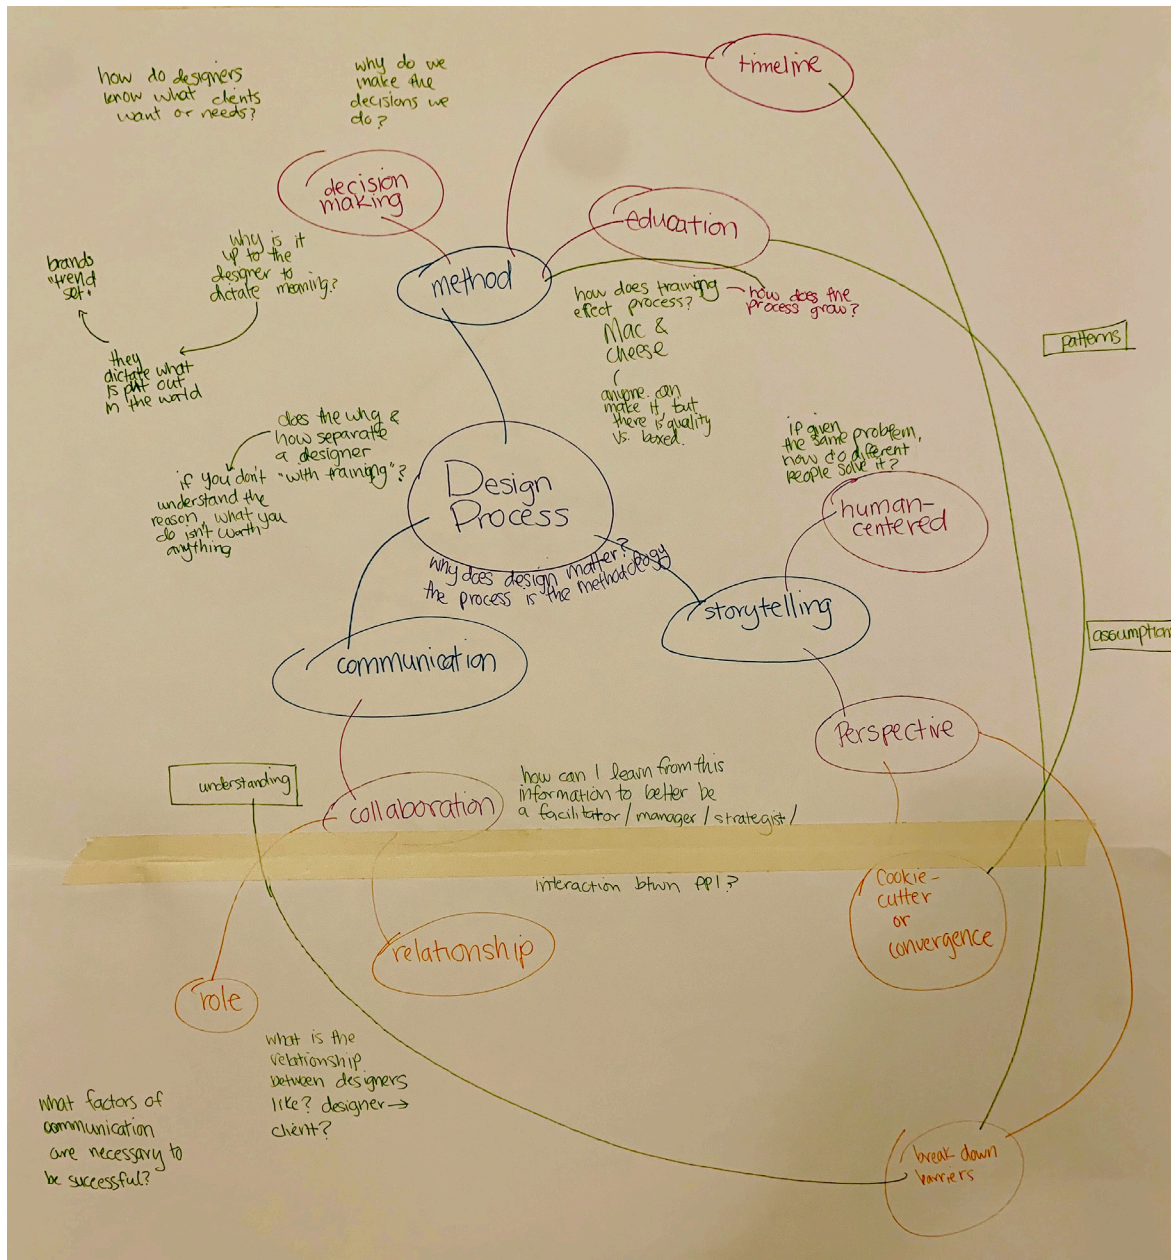 how do designers
know what clients
want or needs?
why do we
make the
decisions we
do?
timeline
decision
making
education
method
why is it
up to the
designer to
dictate meaning?
brands
"trend
set"
they
dictate what
is put out
in the world
how does training
effect process?
how does the
process grow?
Mac &
cheese
anyone can
make it, but
there is quality
vs. boxed.
patterns
does the why &
how separate
a designer
"with training"?
if you don't
understand the
reason, what you
do isn't worth
anything
Design
Process
why does design matter?
the process is the methodology
if given
the same problem,
how do different
people solve it?
human-
centered
storytelling
assumption
communication
Perspective
understanding
collaboration
how can I learn from this
information to better be
a facilitator/manager/strategist/
interaction btwn ppl?
Cookie-
cutter
or
convergence
relationship
role
what is the
relationship
between designers
like? designer→
client?
what factors of
communication
are necessary to
be successful?
break down
barriers